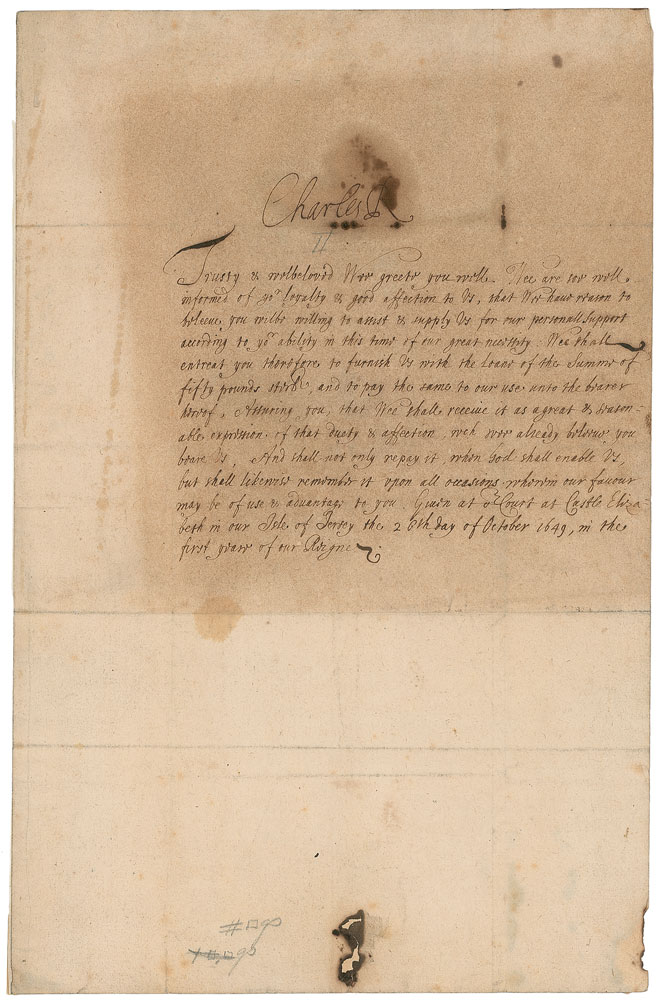 Charles R
II
Trusty & welbeloved Wee greete you well. Wee are soe well
informed of yor loyalty & good affection to Us, that Wee have reason to
beleeve you wilbe willing to assist & supply Us for our personall support
according to yor ability in this time of our great necessity. Wee shall
entreat you therefore to furnish Us with the loane of the Summe of
fifty pounds sterl, and to pay the same to our use unto the bearer
hereof, Assuring you, that Wee shall receive it as a great & season-
able expression of that duety & affection wch wee already beleeve you
beare Us, And shall not only repay it, when God shall enable Us,
but shall likewise remember it upon all occasions, wherein our favour
may be of use & advantage to you. Given at or Court at Castle Eliza-
beth in our Isle of Jersey the 26th day of October 1649, in the
first yeare of our Reigne